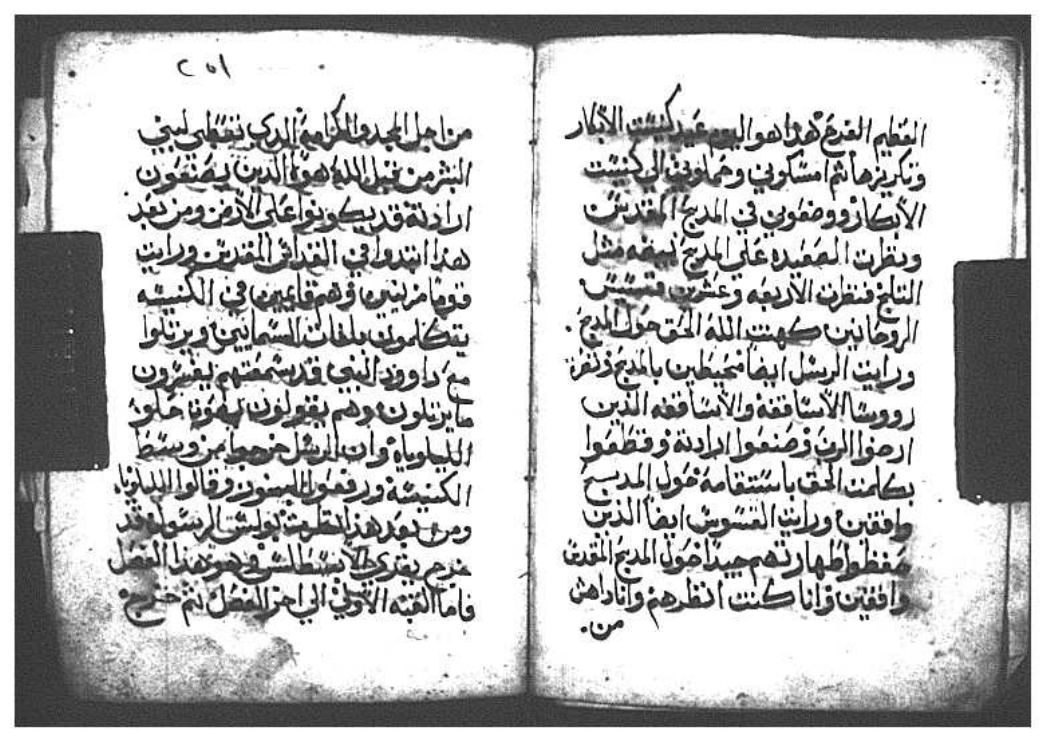 العظيم القدوس هذا هو اليوم عيد كنيست الابكار
وتكريزها ثم امسكوني وحملوني الي كنيست
الابكار ووضعوني في المدبح المقدس
ونظرت الصعيده علي المدبح بيضه مثل
التلج فنظرت الاربعه وعشرين قسيس
الروحانين كهنت الله الحق حول المدبح
ورايت الرسل ايضا محيطين بالمدبح
رووسا الاساقفه والاساقفه الدين
ارضوا الرب وصنعوا ارادته وقطعوا
بكلمت الحق باستقامه حول المدبح
واقفين ورايت القسوس ايضا الدين
حفظوا طهارتهم جيدا حول المدبح المقدس
واقفين وانا كنت انظرهم وانا داهش
من
٢٥١
من اجل المجد والكرامه الدي تعطي لبني
البشر من قبل الله هولا الدين يصنعون
ارادته قد يكونوا علي الارض ومن بعد
هدا ابتدوا في القداس المقدس ورايت
قوما مرتبين وهم قايمين في الكنيسه
يتكلمون بلغات السمايين ويرتلوا
مع داوود النبي قد سمعتهم يفسرون
ما يرتلون وهم يقولون
الليلوياه وان الرسل خرجوا من وسط
الكنيسه ورفعوا وقالوا الليلويا
ومن بعد هدا نظرت بولس الرسول قد
خرج يقري الابسطلس وهو هدا الفصل
فاما القبه الاولي الي اخر الفصل ثم خرج